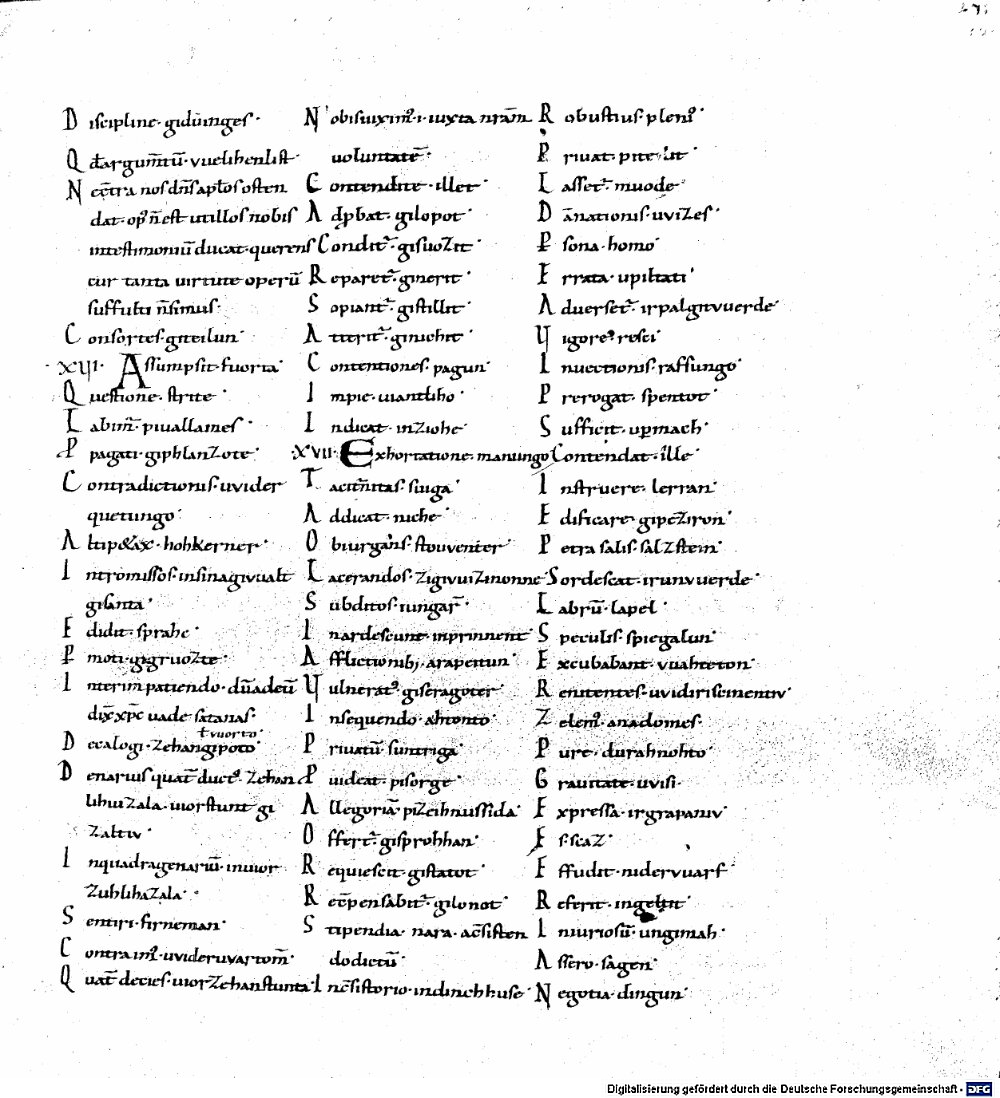 Discipline· giduinges·
Q d̄argum̄tū· vuelihenlist·
N ec̄tra nos dn̄s apl̄os osten
dat· op̄ n̄est ut illos nobis
intestimoniū ducat· querens
cur tanta uirtute operū
suffulti n̄simus·
Consortes· giteilun·
·XVI· Assumpsit· fuorta·
Questione· strite·
Labim̄· piuallames·
Ppagati· giphlanzote·
Contradictionis· uvider
quetungo·
Altip&ax· hohkerner·
Intromissos· insinagivualt
gisanta·
Edidit· sprahe·
Pmoti· gigruozte·
Interim patiendo· dū adeū
dix̄ xp̄c uade satanas·
ł vuorto·
Decalogi· zehangipoto·
Denarius quat̄ duct⁹· zehan
lihiu zala· uiorstunt gi
zaltiv·
Inquadragenariū· inuior
zuhlihazala·
Sentiri· firneman·
Contraim̄· uvideruvartom̄·
Quat̄ decies· uiorzehanstunta
Nobisuixim⁹· i· iuxta nrām
uoluntatē·
Contendite· illet·
Adp̄bat· gilopot·
Condit̄· gisuozit·
Reparet̄· ginerit·
Sopiant̄· gistillit·
Atterit̄· ginichit·
Contentiones· pagun·
Impie· uiantliho·
Indicat· inziohe·
·XVII· Exhortatione· manungo
Tacit̄nitas· suiga·
Addicat· niche·
Obiurgan̄s· stouventer·
Lacerandos· zigivuizinonne
Subditos· iungar̄·
Inardescunt· inprinnent·
Afflictionib; arapeitun·
Vulnerat̄· giseragoter·
Insequendo· ahtonto·
Priuatū· suntriga·
Puideat· pisorge·
Allegoriā· pizeihnussida·
Offert̄· gisprohhan·
Requiescit· gistatot·
Rec̄pensabit̄· gilonot·
Stipendia· nara· ac̄sisten
dodictū·
Inc̄sistorio· indinchhuse·
Robustius· plen⁹·
Priuat· pite·
Lasset̄· muode·
Dānationis· uvizes·
Psona· homo·
Errata· upiltati·
Aduerset̄· irpalgituuerde·
Vigore· resci·
Inuectionis· raffungo·
Prerogat· spentot·
Sufficit· up̄mach·
Contendat· ille·
Instruere· lerran·
Edificare· gipez̄iron·
Petra salis· salzstein·
Sordescat· irunvuerde·
Labrū· lapel·
Speculis· spiegalun·
Excubabant· vuahteton·
Renitentes· uvidiriscinentiv·
Zelem⁹· anadomes·
Pure· durahnohto·
Grauitate· uvisi·
Expressa· irgrapaniv·
Es· scaz·
Effudit· niderwarf·
Referit· ingeltit·
Iniuriosū· ungimah·
Assero· sagen·
Negotia· dingun·
Digitalisierung gefördert durch die Deutsche Forschungsgemeinschaft - DFG